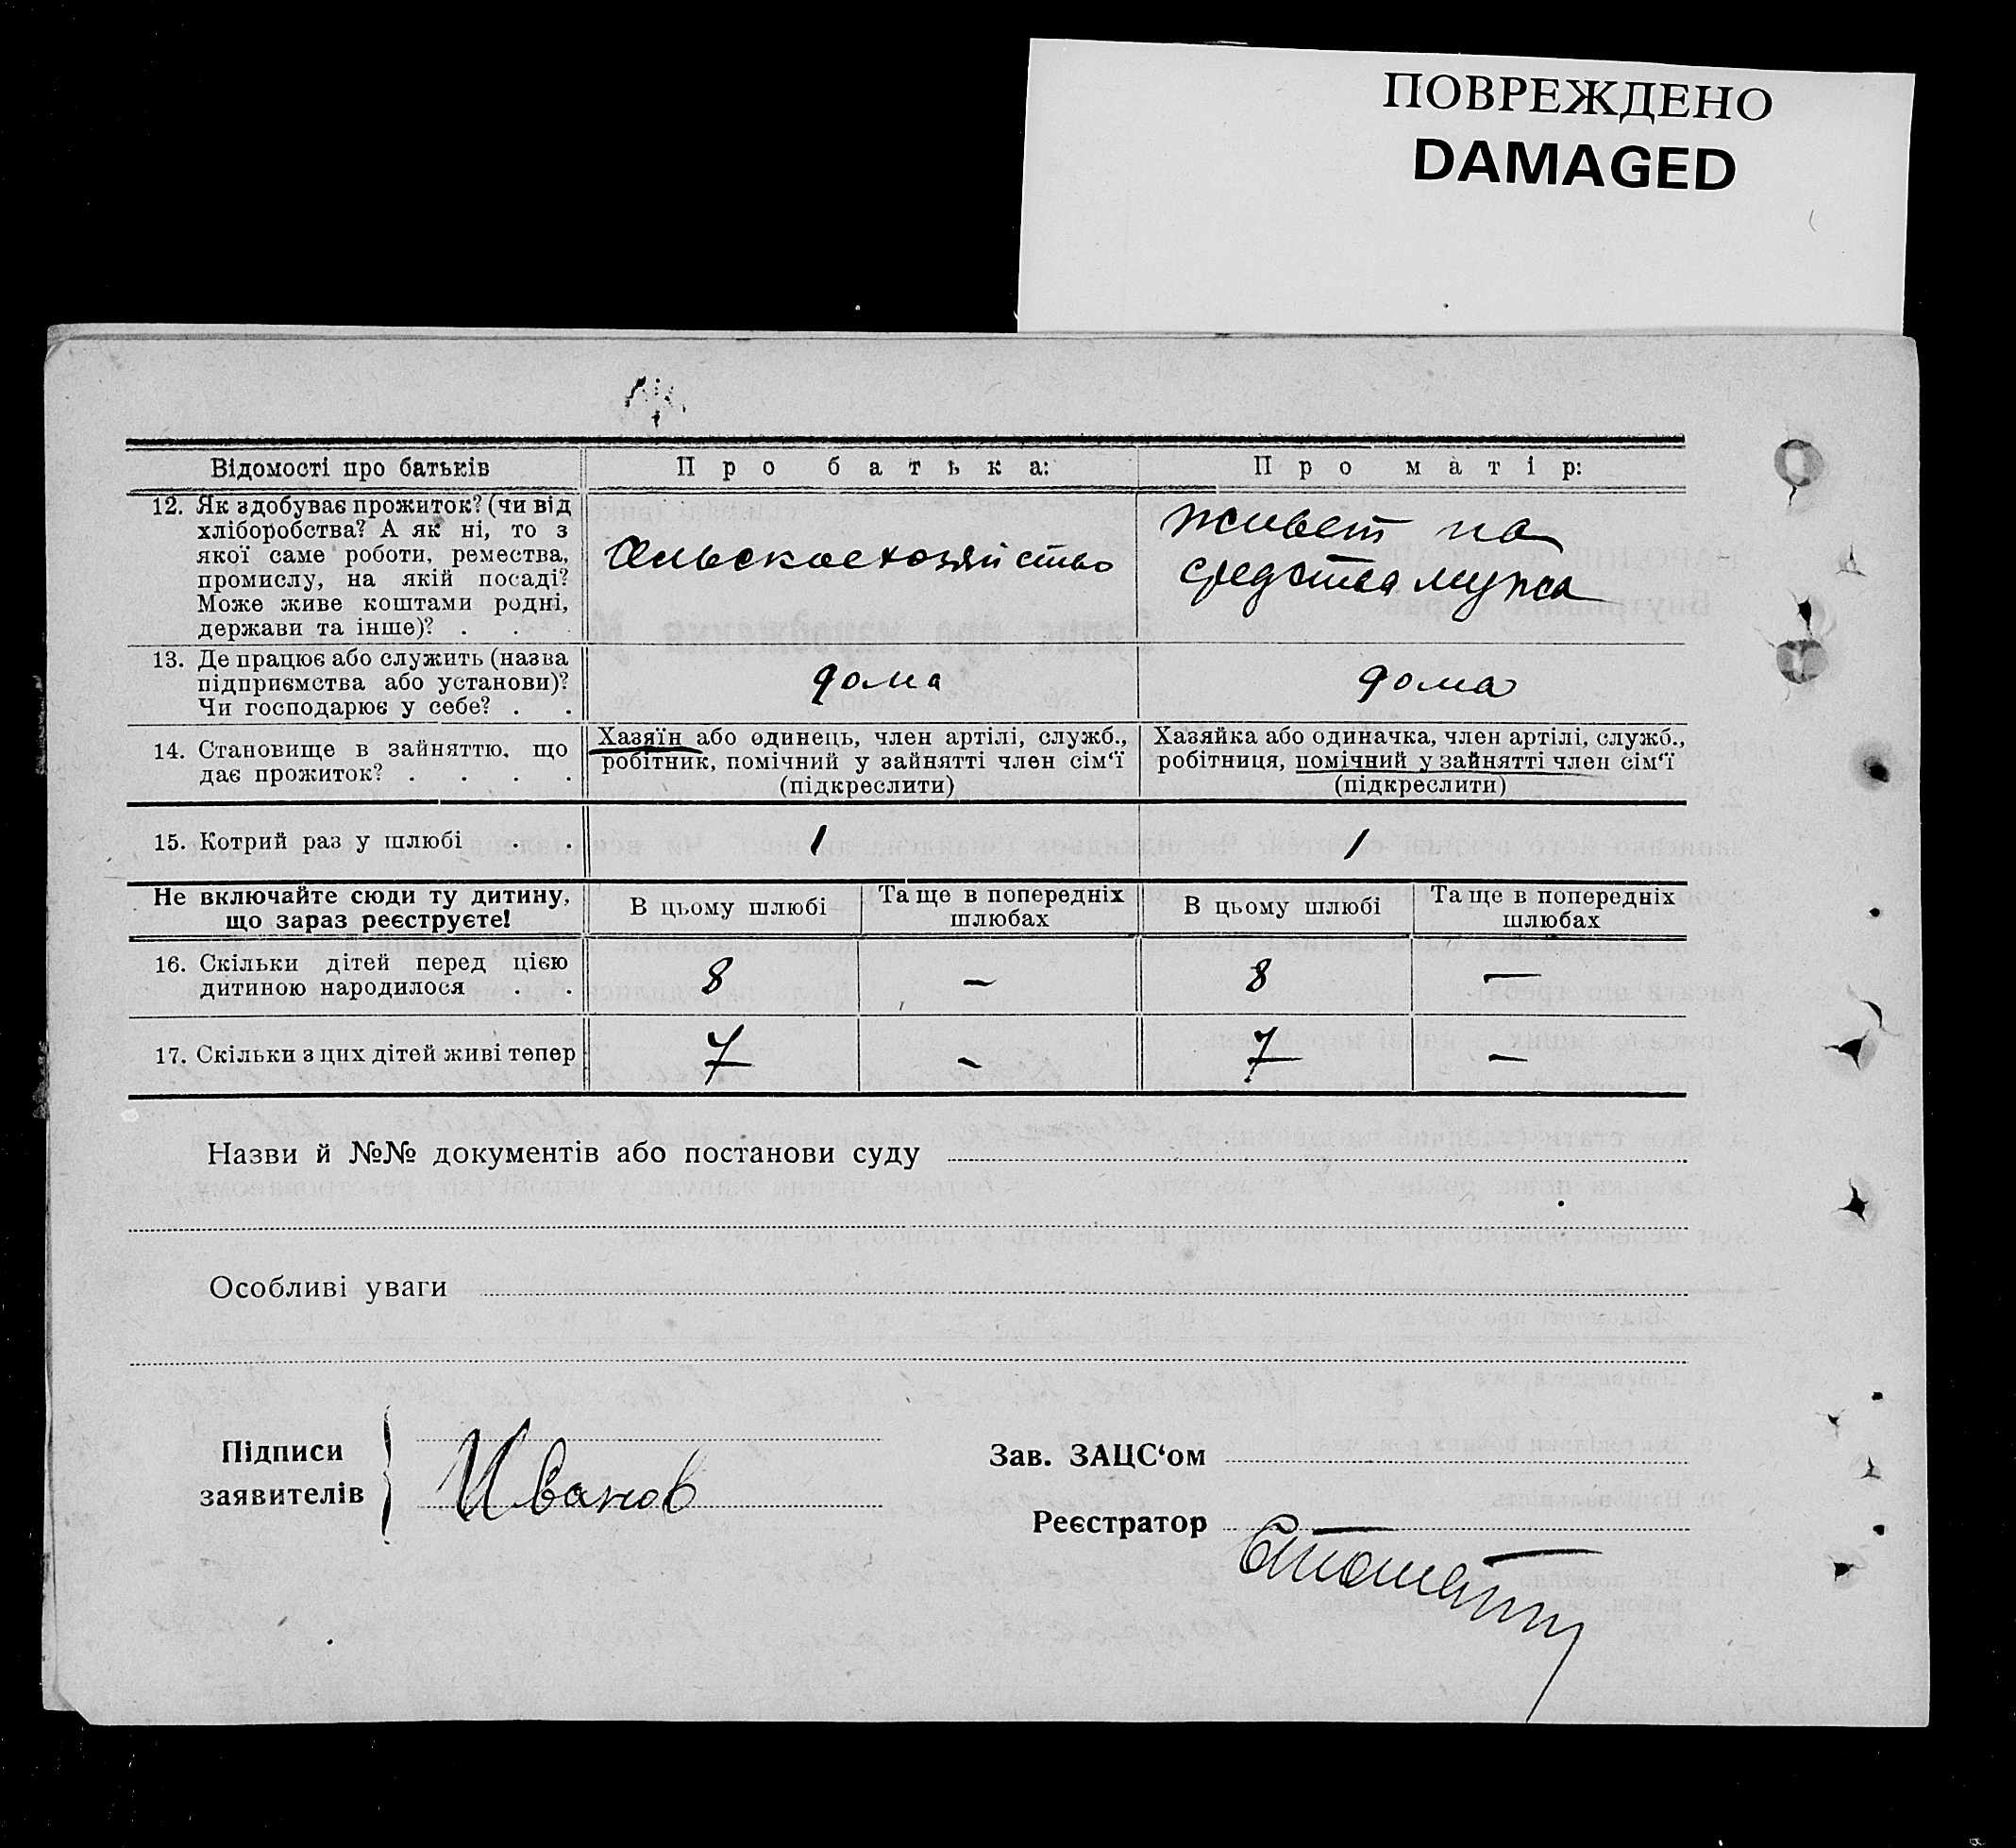 ПОВРЕЖДЕНО
DAMAGED
Відомості про батьків
Про батька:
Про матір:
12. Як здобуває прожиток? (чи від
хліборобства? А як ні, то з
якої саме роботи, ремества,
промислу, на якій посаді?
Може живе коштами родні,
держави та інше)? . . .
Сельское хозяйство
живет на
средства мужа
13. Де працює або служить (назва
підприємства або установи)?
Чи господарює у себе? . .
дома
дома
14. Становище в зайняттю, що
дає прожиток? . . . .
Хазяїн або одинець, член артілі, служб.,
робітник, помічний у зайнятті член сім‘ї
(підкреслити)
Хазяйка або одиначка, член артілі, служб.,
робітниця, помічний у зайнятті член сім‘ї
(підкреслити)
15. Котрий раз у шлюбі . .
1
1
Не включайте сюди ту дитину,
що зараз реєструєте!
В цьому шлюбі
Та ще в попередніх
шлюбах
В цьому шлюбі
Та ще в попередніх
шлюбах
16. Скільки дітей перед цією
дитиною народилося . .
8
—
8
—
17. Скільки з цих дітей живі тепер
7
—
7
—
Назви й №№ документів або постанови суду
Особливі уваги
Підписи
заявителів
Иванов
Зав. ЗАЦС‘ом
Реєстратор